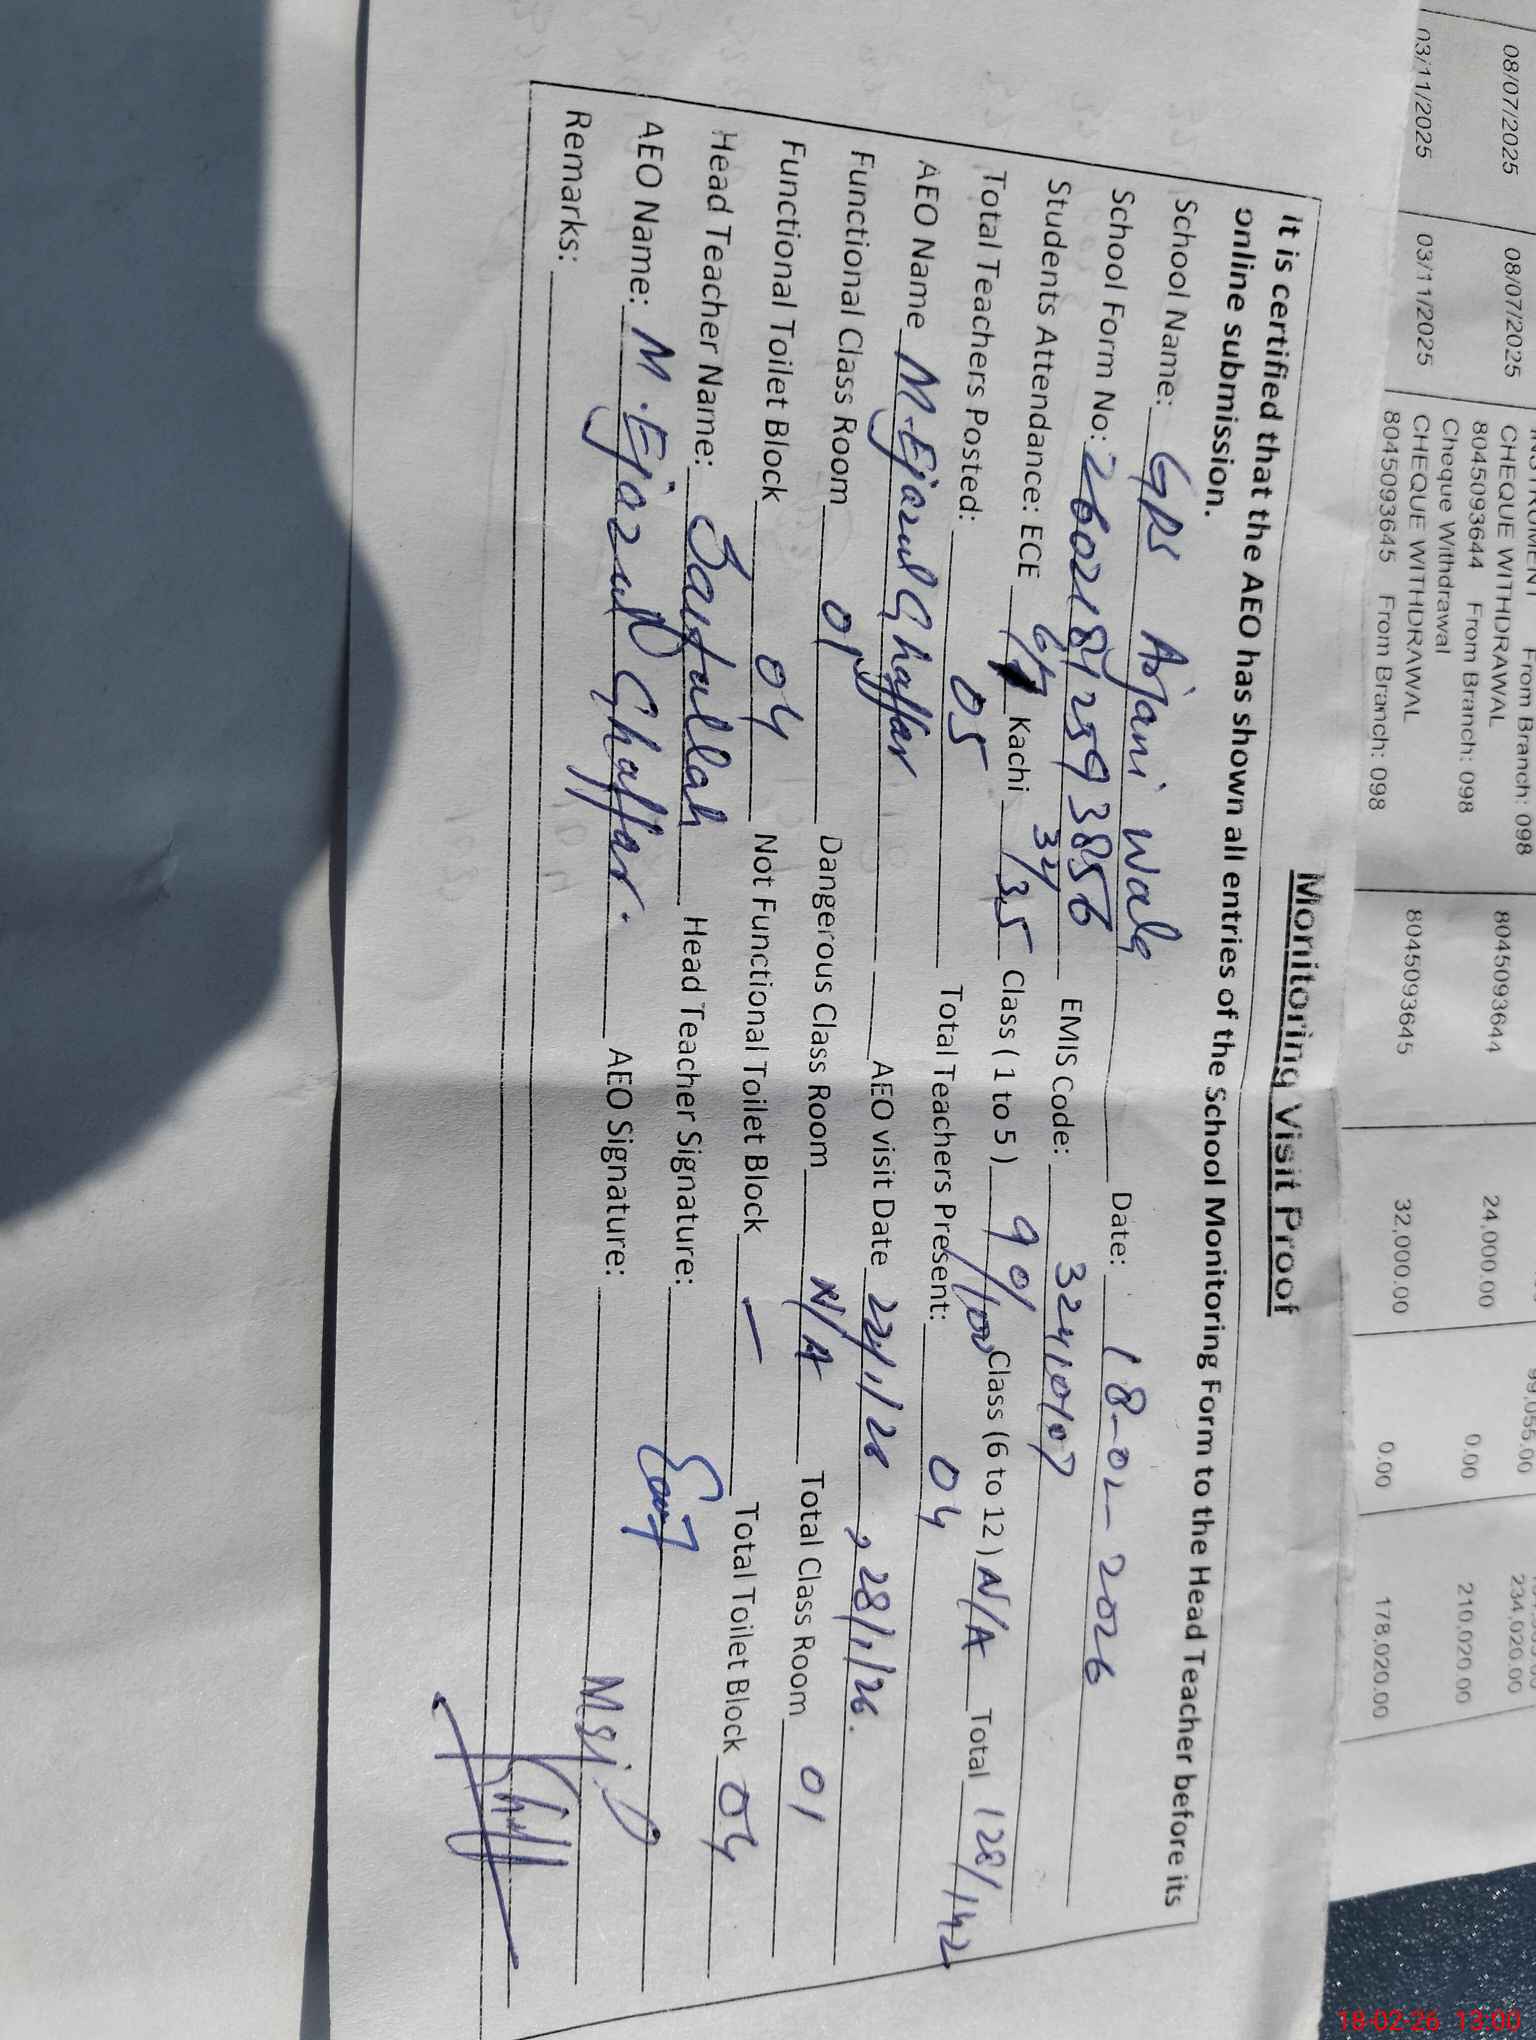 08/07/2025 08/07/2025 CHEQUE WITHDRAWAL 8045093644 24,000.00 0.00 210,020.00
8045093644 From Branch: 098
Cheque Withdrawal
03/11/2025 03/11/2025 CHEQUE WITHDRAWAL 8045093645 32,000.00 0.00 178,020.00
8045093645 From Branch: 098
Monitoring Visit Proof
It is certified that the AEO has shown all entries of the School Monitoring Form to the Head Teacher before its
online submission.
School Name: GPS Arjani Wala Date: 18-02-2026
School Form No: 26021812593856 EMIS Code: 32410107
Students Attendance: ECE Kachi 32/35 Class ( 1 to 5 ) 90/100 Class (6 to 12 ) N/A Total 128/142
Total Teachers Posted: 05 Total Teachers Present: 04
AEO Name M. Ejazul Ghaffar AEO visit Date 22/1/26, 28/1/26.
Functional Class Room 01 Dangerous Class Room N/A Total Class Room 01
Functional Toilet Block 04 Not Functional Toilet Block — Total Toilet Block 04
Head Teacher Name: Saifullah Head Teacher Signature:
AEO Name: M. Ejazul Ghaffar. AEO Signature:
Remarks:
18-02-26 13:00